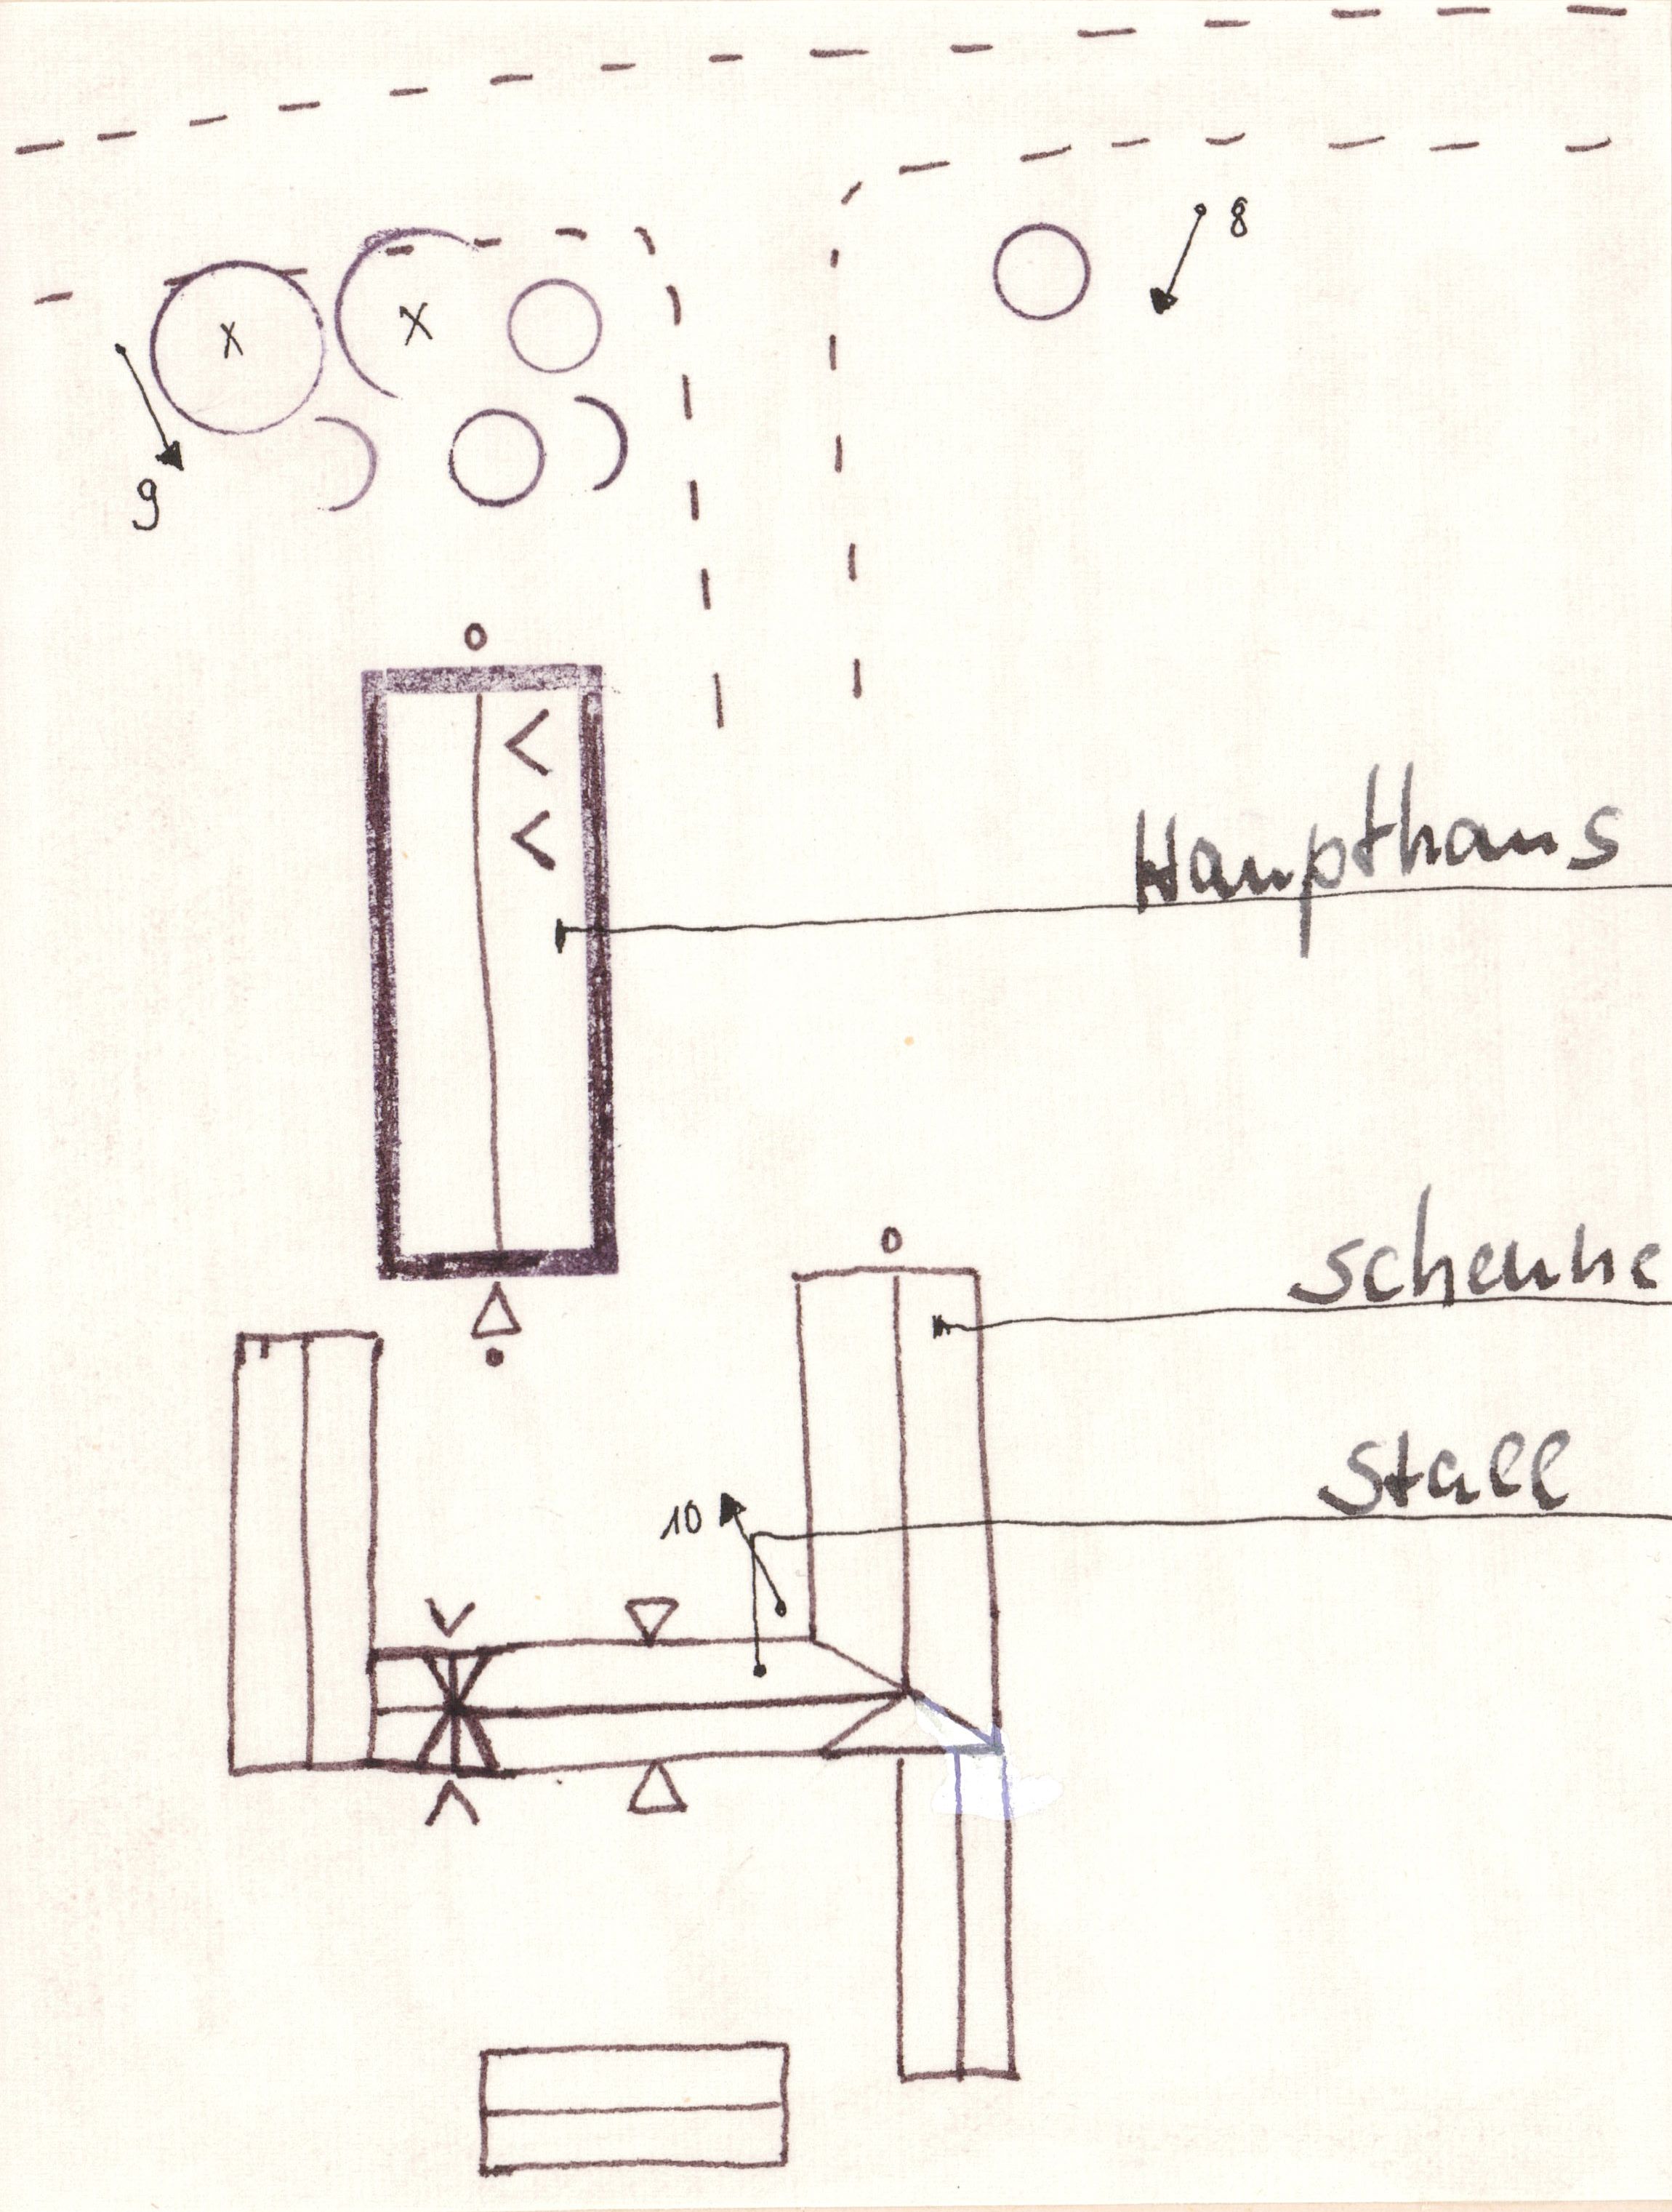 8
X
X
9
Haupthaus
Scheune
Stall
10